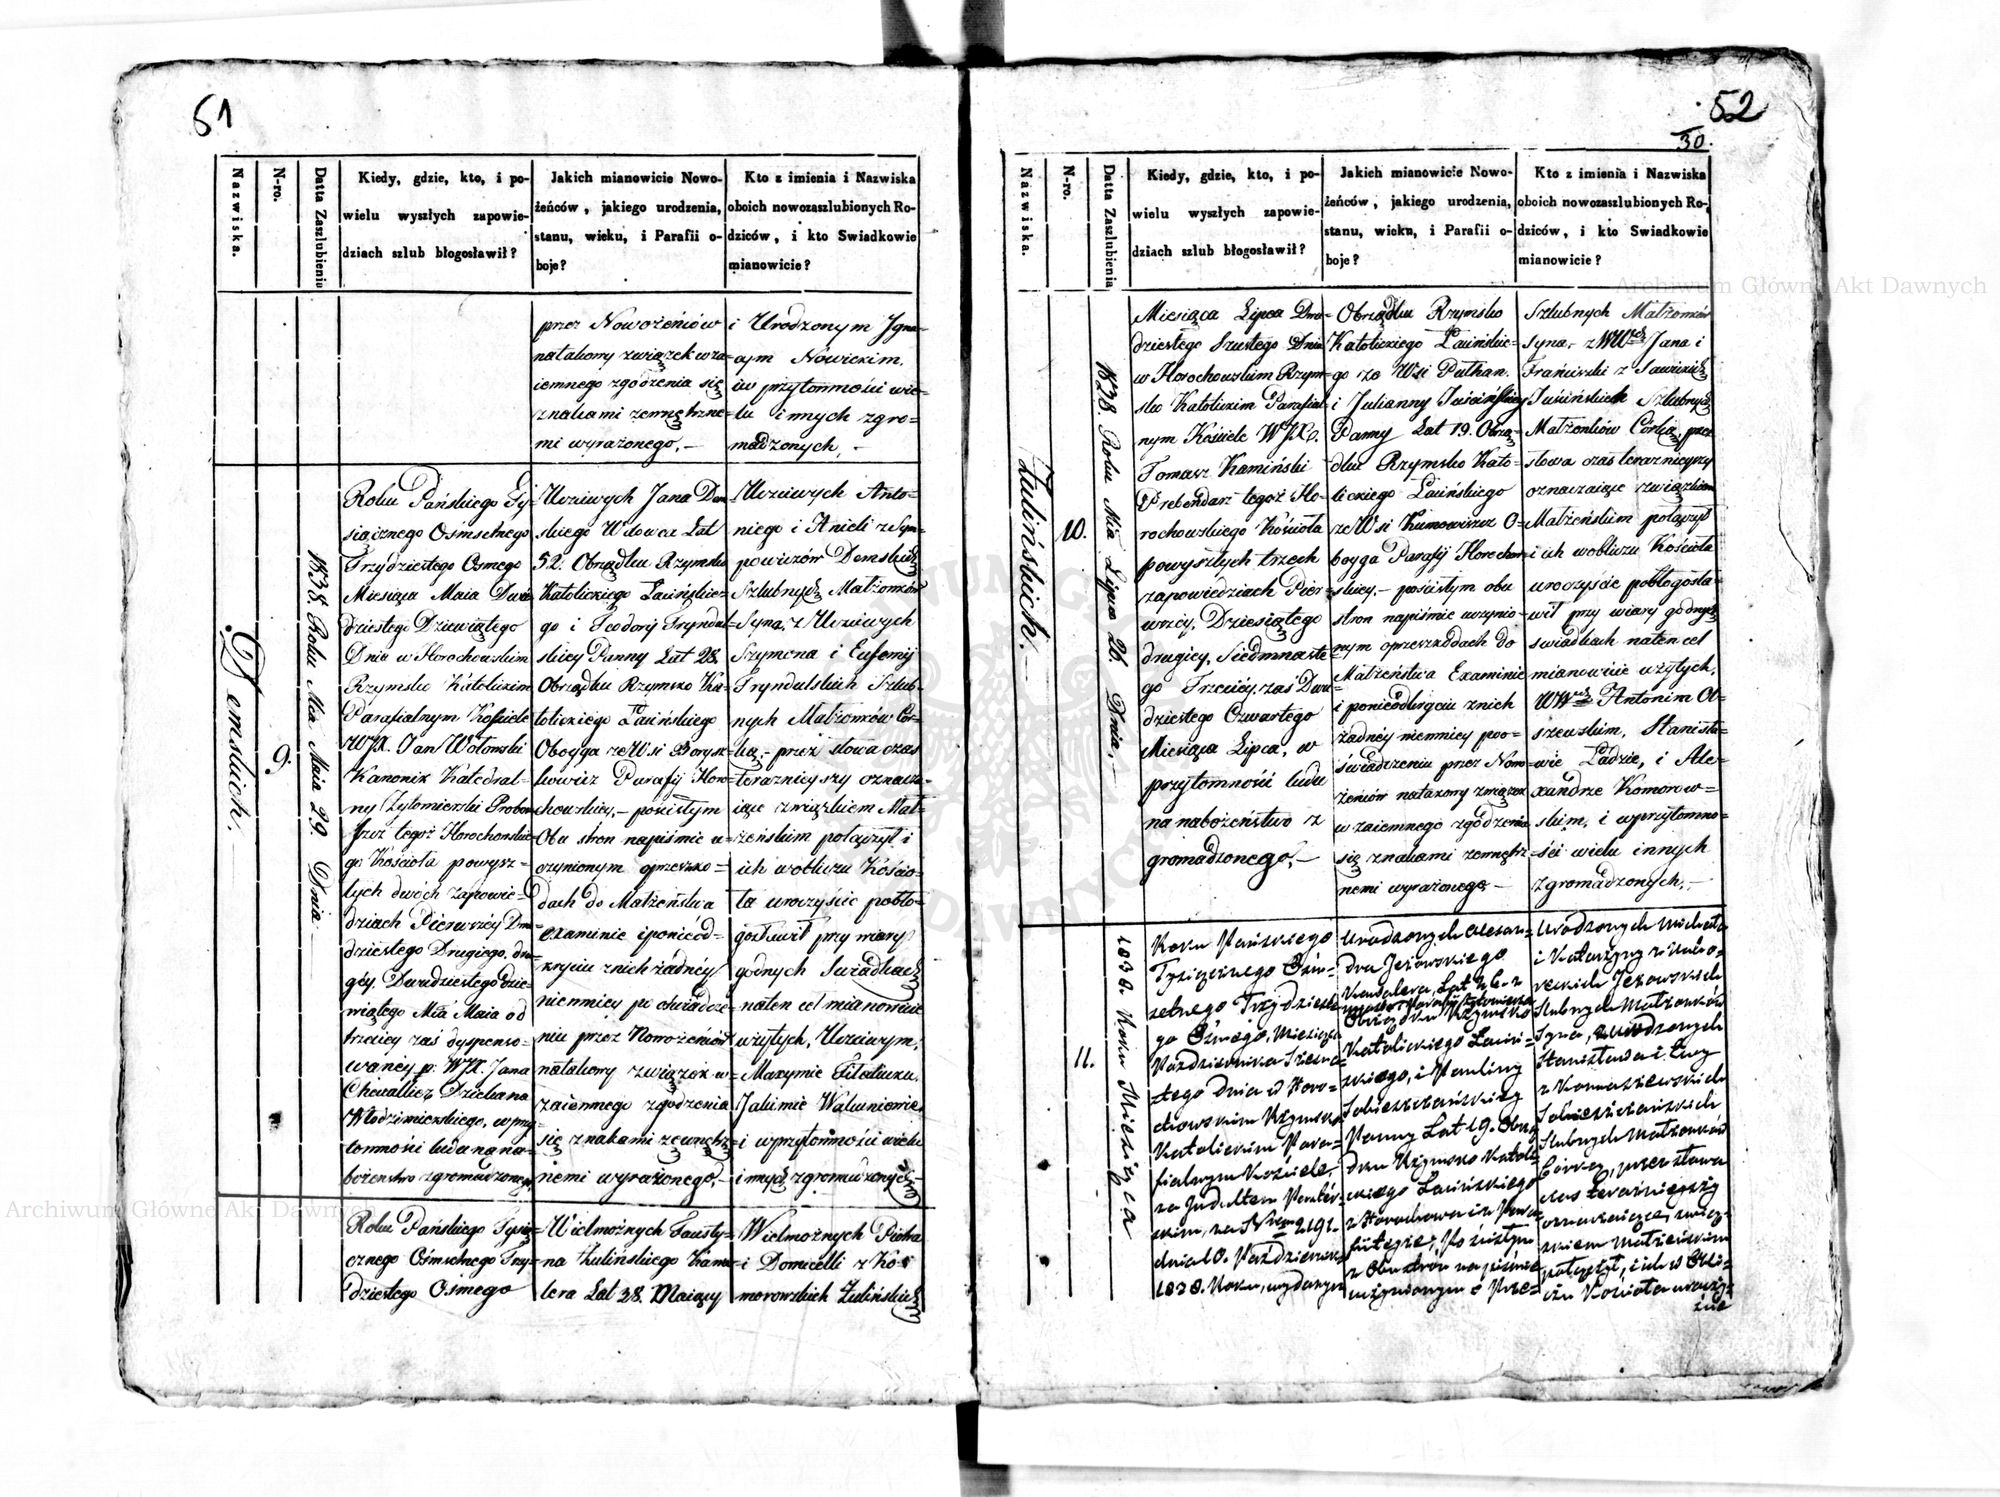 51
Nazwiska.
N-ro.
Datta Zaszlubienia
Kiedy, gdzie, kto, i po-
wielu wyszłych zapowie-
dziach szlub błogosławił?
Jakich mianowicie Nowo-
żeńców, jakiego urodzenia,
stanu, wieku, i Parafii o-
boje?
Kto z imienia i Nazwiska
oboich nowozaszlubionych Ro-
dziców, i kto Swiadkowie
mianowicie?
przez Nowożeńców
natakowy związek wza-
iemnego zgodzenia się
znakami zewnętrzne-
mi wyrażonego. —
i Urodzonym Igna-
cym Nowickim,
iw przytomności wie-
lu innych zgro-
madzonych. —
Demskich.
9.
1838. Roku Mca Maia 29. Dnia.
Roku Pańskiego Ty-
siącznego Osmsetnego
Trzydziestego Osmego
Miesiąca Maia Dwu-
dziestego Dziewiątego
Dnia w Horochowskim
Rzymsko Katolickim
Parafialnym Kościele
WJX. Jan Wołowski
Kanonik Katedral-
ny Żytomierski Probo-
szcz tegoż Horochowskie-
go Kościoła powysz-
łych dwóch zapowie-
dziach Pierwszéy Dwu-
dziestego Drugiego, dru-
giéy Dwudziestego Dzie-
wiątego Mca Maia od
trzeciey zaś dyspenso-
waney p. WJX. Jana
Chevallier Dziekana
Włodzimierskiego, w przy-
tomności ludu na na-
bożeństwo zgromadzonego,
Uczciwych Jana Dem-
skiego Wdowca Lat
52. Obrządku Rzymsko
Katolickiego Łacińskie-
go i Teodory Tryndul-
skiey Panny Lat 28.
Obrządku Rzymsko Ka-
tolickiego Łacińskiego
Oboyga ze Wsi Borysz-
kowicz Parafij Horo-
chowskiey, — pościsłym
Obu stron napiśmie u-
czynionym oprzeszko-
dach do Małżeństwa
examinie iponieod-
kryciu znich żadnéy
niemniey po oświadcze-
niu przez Nowożeńców
natakowy związek w-
zaiemnego zgodzenia
się znakami zewnętrz-
niemi wyrażonego, —
Uczciwych Anto-
niego i Anieli z Szym-
powiczów Demskich
Szlubnych Małżonków
Syna, z Uczciwych
Szymona i Eufemij
Tryndulskich Szlub-
nych Małżonków Cór-
ką, — przez słowa czas
teraznieyszy oznacza-
iące związkiem Mał-
żeńskim połączył i
ich wobliczu Kościo-
ła uroczyście pobło-
gosławił przy wiary
godnych Swiadkach
naten cel mianowicie
użytych, Uczciwym,
Maxymie Filatiuku,
Jakimie
i wprzytomności wielu
innych zgromadzonych. —
Roku Pańskiego Tysią-
cznego Osmsetnego Trzy-
dziestego Osmego
Wielmożnych Fausty-
na Żulińskiego Kawa-
lera Lat 38. Maiący
Wielmożnych Piotra
i Domicelli z Ko-
morowskich Żulińskich
52
30.
Nazwiska.
N-ro.
Datta Zaszlubienia
Kiedy, gdzie, kto, i po-
wielu wyszłych zapowie-
dziach szlub błogosławił?
Jakich mianowicie Nowo-
żeńców, jakiego urodzenia,
stanu, wieku, i Parafii o-
boje?
Kto z imienia i Nazwiska
oboich nowozaszlubionych Ro-
dziców, i kto Swiadkowie
mianowicie?
Żulińskich. —
10.
1838. Roku Mca Lipca 26. Dnia. —
Miesiąca Lipca Dwu-
dziestego Szustego Dnia
w Horochowskim Rzym-
sko Katolickim Parafial-
nym Kościele WJX.
Tomasz Kamiński
Prebendarz tegoż Ho-
rochowskiego Kościoła
powyszłych trzech
zapowiedziach Pier-
wszéy, Dziesiątego
drugiey, Siedmnaste-
go Trzeciéy, zaś Dwu-
dziestego Czwartego
Miesiąca Lipca, w
przytomności ludu
na nabożeństwo z
gromadzonego, —
Obrządku Rzymsko
Katolickiego Łacińskie-
go ze Wsi Pułhan.
i Julianny Jusińskiey
Panny Lat 19. Obrzą-
dku Rzymsko Kato-
lickiego Łacińskiego
ze Wsi Kumowicz O-
boyga Parafij Horochow-
skiey, — pościsłym obu
stron napiśmie uczynio-
nym oprzeszkodach do
Małżeństwa Examinie
i ponieodkryciu znich
żadney niemniey poo-
świadczeniu przez Nowo-
żeńców natakowy związek
wzaiemnego zgodzenia
się znakami zewnętrz-
nemi wyrażonego —
Szlubnych Małżonków
Syna, z WWch Jana i
Franciszki z Sawickich
Jusińskich Szlubnych
Małżonków Córką, przez
słowa czas teraznieyszy
oznaczaiące związkiem
Małżeńskim połączył
i ich wobliczu Kościoła
uroczyście pobłogosła-
wił przy wiary godnych
swiadkach naten cel
mianowicie użytych,
WWch Antonim Ol-
szewskim, Stanisła-
wie Ładzie, i Ale-
xandrze Komorow-
skim, i wprzytomno-
ści wielu innych
zgromadzonych. —
11.
1838. Roku Miesiąca
Roku Pańskiego
Tysiącznego Ośm-
setnego Trzydzieste-
go Ósmego, Miesiąca
Października Szesna-
stego Dnia w Horo-
chowskim Rzymsko
Katolickim Para-
fialnym Kościele
za Indultem
za Nrem 2191.
dnia 10. Październik
1838. Roku, wydanym
Urodzonych Alexan-
dra Jeżowskiego
Kawalera, Lat 26. z
Obrządku Rzymsko
Katolickiego Łaciń-
skiego, i Pauliny
Sobieszczańskiey
Panny Lat 19. Obrzą-
dku Rzymsko Katoli-
ckiego Łacińskiego
z Horochowa i z Para-
fii tegoż, Po ścisłym
z Obu stron napiśmie
uczynionym o Prze-
Urodzonych Michała
i Katarzyny
Jeżowskich
Szlubnych Małżonków
Syna, z Urodzonych
Stanisława i Ewy
z Komaszewskich
Sobieszczańskich
Szlubnych Małżonków
Córką, przez słowa
czas teraźnieyszy
oznaczaiące, związ-
kiem Małżeńskim
połączył, i ich w Obli-
czu Kościoła uroczy-
ście
Archiwum Główne Akt Dawnych
Archiwum Główne Akt Dawnych